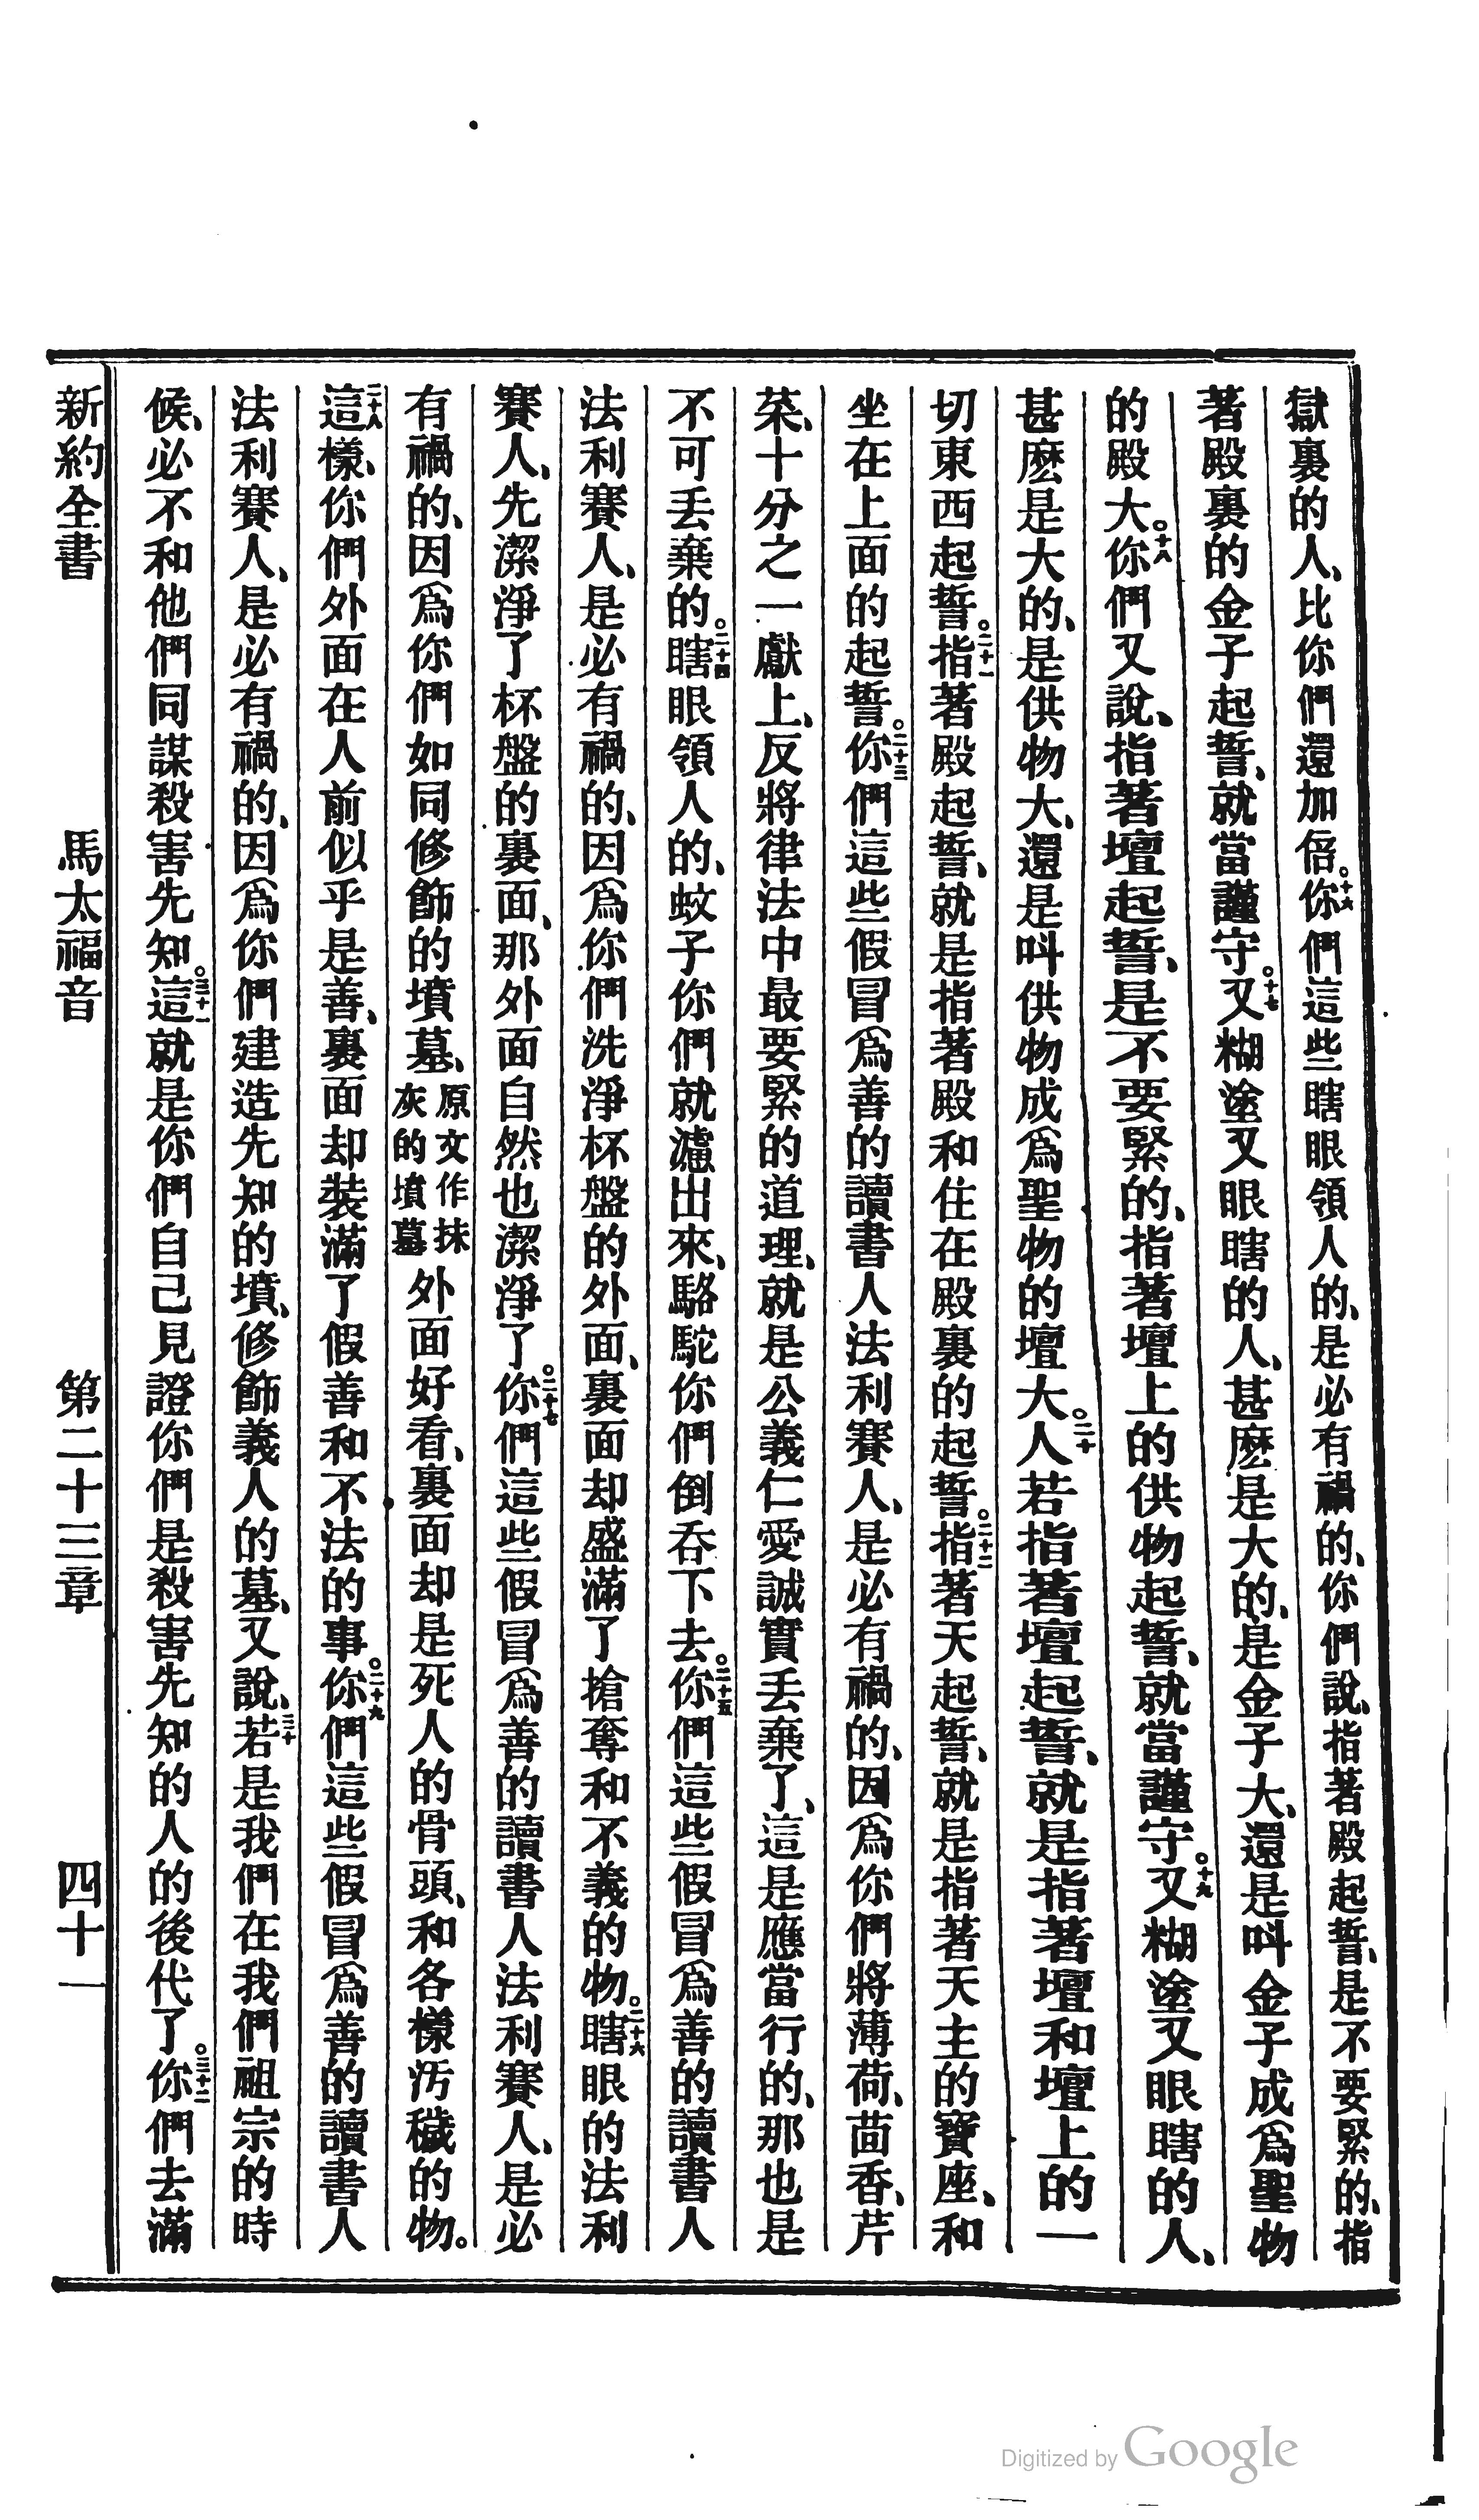 獄裏的人、比你們還加倍。十六你們這些瞎眼領人的、是必有禍的、你們說、指著殿起誓、是不要緊的、指
著殿裏的金子起誓、就當謹守。十七又糊塗又眼瞎的人、甚麽是大的、是金子大、還是呌金子成爲聖物
的殿大。十八你們又說、指著壇起誓、是不要緊的、指著壇上的供物起誓、就當謹守。十九又糊塗又眼瞎的人、
甚麽是大的、是供物大、還是呌供物成爲聖物的壇大。二十人若指著壇起誓、就是指著壇和壇上的一
切東西起誓。二十一指著殿起誓、就是指著殿和住在殿裏的起誓。二十二指著天起誓、就是指著天主的寶座、和
坐在上面的起誓。二十三你們這些假冒爲善的讀書人法利賽人、是必有禍的、因爲你們將薄荷、茴香、芹
菜、十分之一獻上、反將律法中最要緊的道理、就是公義仁愛誠實丟棄了、這是應當行的、那也是
不可丟棄的。二十四瞎眼領人的、蚊子你們就濾出來、駱駝你們倒吞下去。二十五你們這些假冒爲善的讀書人
法利賽人、是必有禍的、因爲你們洗淨杯盤的外面、裏面却盛滿了搶奪和不義的物。二十六瞎眼的法利
賽人、先潔淨了杯盤的裏面、那外面自然也潔淨了。二十七你們這些假冒爲善的讀書人法利賽人、是必
有禍的、因爲你們如同修飾的墳墓、原文作抹灰的墳墓外面好看、裏面却是死人的骨頭、和各樣汚穢的物。
二十八這樣、你們外面在人前似乎是善、裏面却裝滿了假善和不法的事。二十九你們這些假冒爲善的讀書人
法利賽人、是必有禍的、因爲你們建造先知的墳、修飾義人的墓、又說、三十若是我們在我們祖宗的時
候、必不和他們同謀殺害先知。三十一這就是你們自己見證你們是殺害先知的人的後代了。三十二你們去滿
新約全書 馬太福音 第二十三章 四十一
Digitized by Google